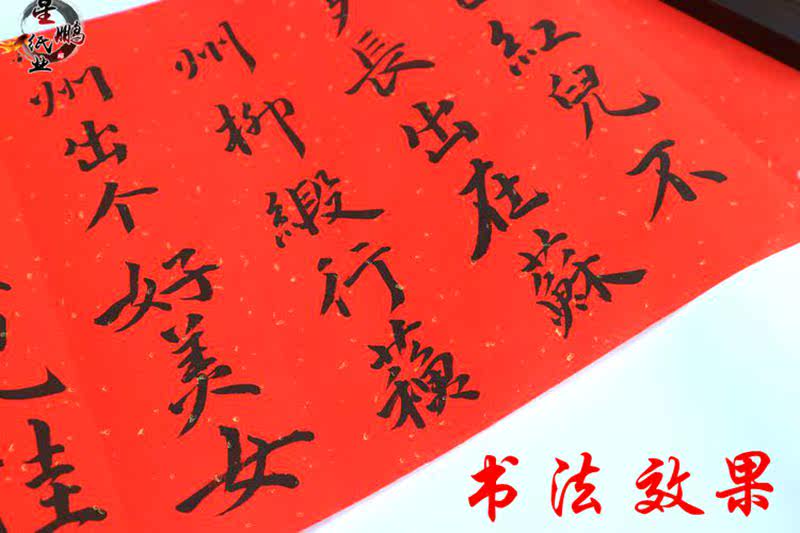 紅兒不
長出在蘇
州柳緞行蘓
州出个好美女
星鹏纸业
书法效果